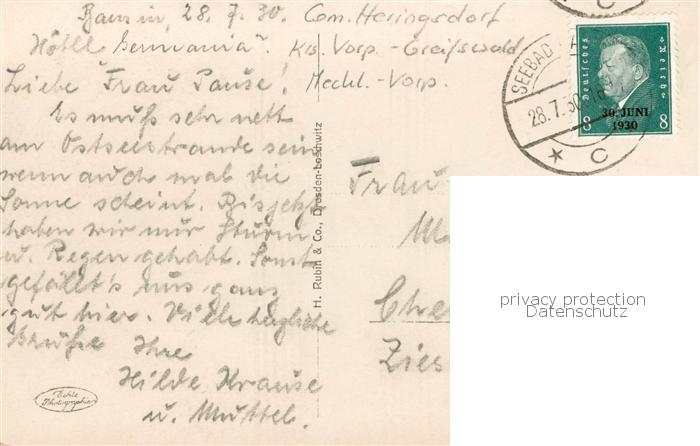 Bansin, 28. 7. 30.
Hotel "Germania".
Gem. Heringsdorf
Krs. Vorp.-Greifswald
Meckl.-Vorp.
Liebe Frau Pause!
Es muß sehr nett
am Ostseestrande sein
wenn auch mal die
Sonne scheint. Bis jetzt
haben wir nur Sturm
u. Regen gehabt. Sonst
gefällt's uns ganz
gut hier. Viele herzliche
Grüße Ihre
Hilde Krause
u. Muttel.
Echte
Photographie
H. Rubin & Co., Dresden-Loschwitz
SEEBAD
28.7.30
C
Deutsches Reich
8 8
30. JUNI
1930
C
Frau
Che
Zies
privacy protection
Datenschutz